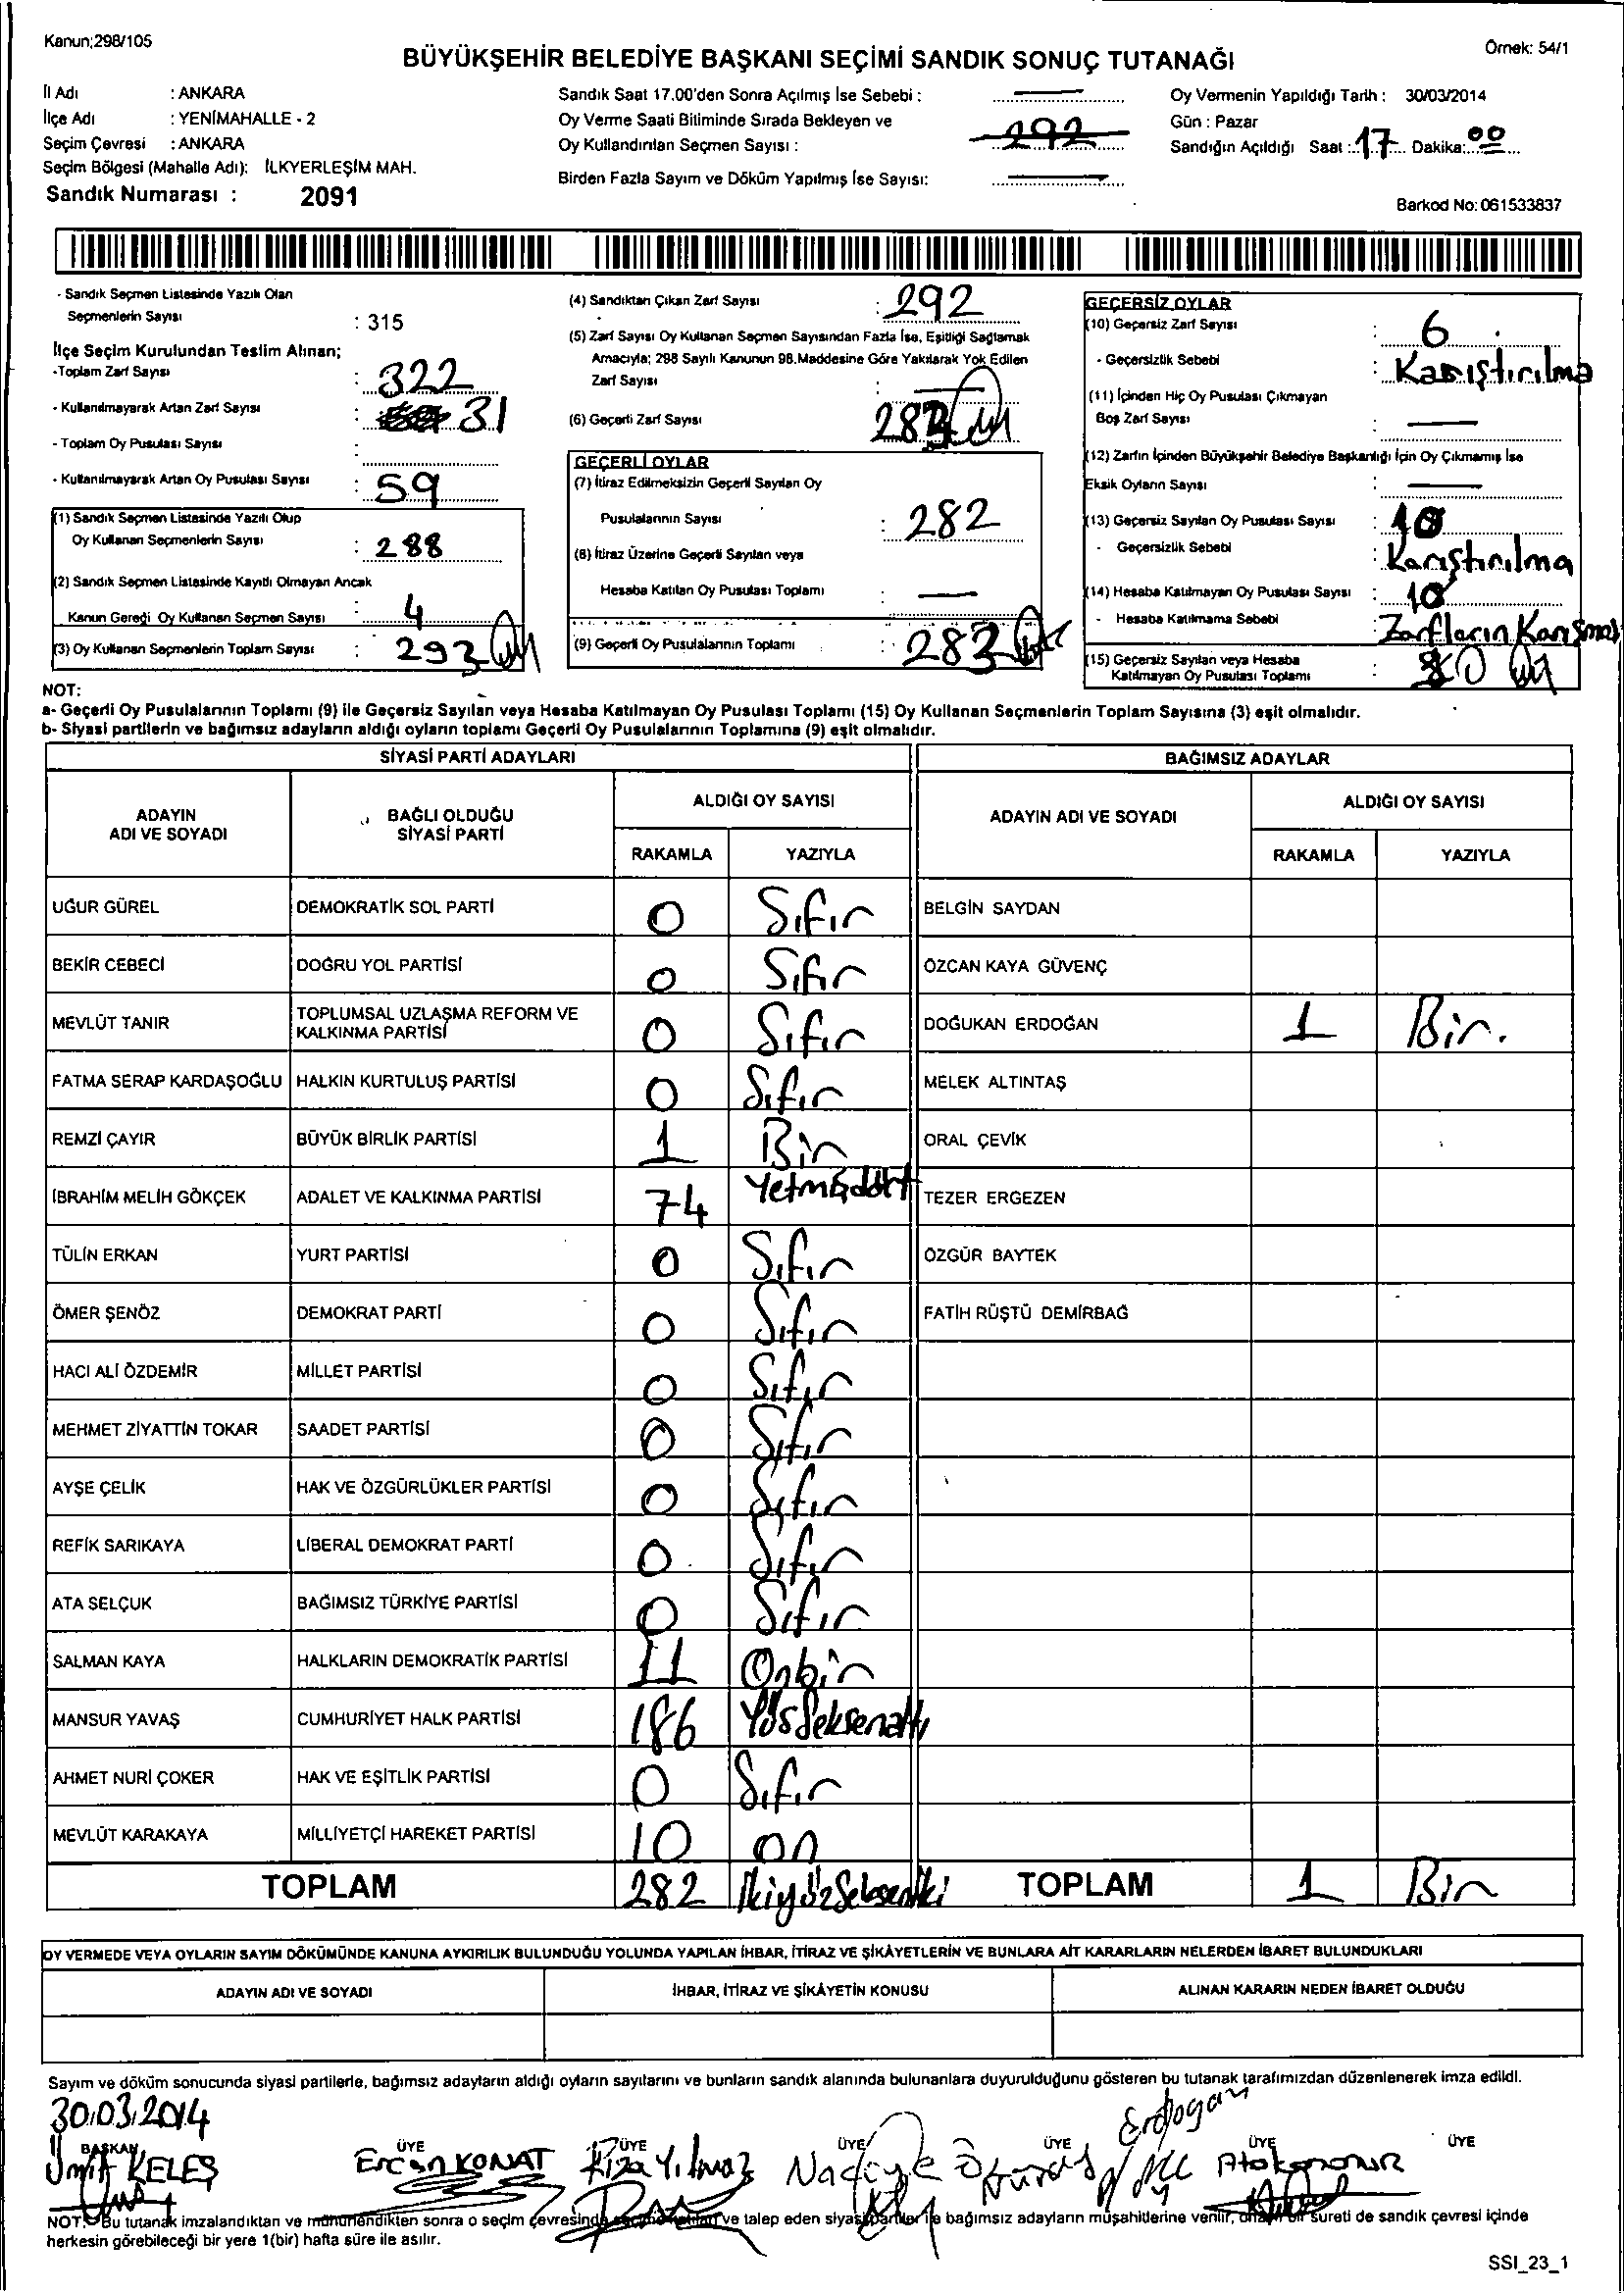 Kanun;298/105
Örnek: 54/1
BÜYÜKŞEHİR BELEDİYE BAŞKANI SEÇİMİ SANDIK SONUÇ TUTANAĞI
İl Adı : ANKARA
İlçe Adı : YENİMAHALLE - 2
Seçim Çevresi : ANKARA
Seçim Bölgesi (Mahalle Adı): İLKYERLEŞİM MAH.
Sandık Numarası : 2091
Sandık Saat 17.00'den Sonra Açılmış İse Sebebi :
Oy Verme Saati Bitiminde Sırada Bekleyen ve
Oy Kullandırılan Seçmen Sayısı : 292
Birden Fazla Sayım ve Döküm Yapılmış İse Sayısı:
Oy Vermenin Yapıldığı Tarih : 30/03/2014
Gün : Pazar
Sandığın Açıldığı Saat : 17 Dakika: 00
Barkod No: 061533837
- Sandık Seçmen Listesinde Yazılı Olan
Seçmenlerin Sayısı : 315
İlçe Seçim Kurulundan Teslim Alınan;
-Toplam Zarf Sayısı : 322
- Kullanılmayarak Artan Zarf Sayısı : 31
- Toplam Oy Pusulası Sayısı :
- Kullanılmayarak Artan Oy Pusulası Sayısı : 59
(1) Sandık Seçmen Listesinde Yazılı Olup
Oy Kullanan Seçmenlerin Sayısı : 288
(2) Sandık Seçmen Listesinde Kayıtlı Olmayan Ancak
Kanun Gereği Oy Kullanan Seçmen Sayısı : 4
(3) Oy Kullanan Seçmenlerin Toplam Sayısı : 293
(4) Sandıktan Çıkan Zarf Sayısı : 292
(5) Zarf Sayısı Oy Kullanan Seçmen Sayısından Fazla İse, Eşitliği Sağlamak
Amacıyla; 298 Sayılı Kanunun 98.Maddesine Göre Yakılarak Yok Edilen
Zarf Sayısı :
(6) Geçerli Zarf Sayısı : 283
GEÇERLİ OYLAR
(7) İtiraz Edilmeksizin Geçerli Sayılan Oy
Pusulalarının Sayısı : 282
(8) İtiraz Üzerine Geçerli Sayılan veya
Hesaba Katılan Oy Pusulası Toplamı :
(9) Geçerli Oy Pusulalarının Toplamı : 283
GEÇERSİZ OYLAR
(10) Geçersiz Zarf Sayısı : 6
- Geçersizlik Sebebi : Karıştırılma
(11) İçinden Hiç Oy Pusulası Çıkmayan
Boş Zarf Sayısı :
(12) Zarfın İçinden Büyükşehir Belediye Başkanlığı İçin Oy Çıkmamış İse
Eksik Oyların Sayısı :
(13) Geçersiz Sayılan Oy Pusulası Sayısı : 10
- Geçersizlik Sebebi : Karıştırılma
(14) Hesaba Katılmayan Oy Pusulası Sayısı : 10
- Hesaba Katılmama Sebebi : Zarfların Karışması
(15) Geçersiz Sayılan veya Hesaba
Katılmayan Oy Pusulası Toplamı :
NOT:
a- Geçerli Oy Pusulalarının Toplamı (9) ile Geçersiz Sayılan veya Hesaba Katılmayan Oy Pusulası Toplamı (15) Oy Kullanan Seçmenlerin Toplam Sayısına (3) eşit olmalıdır.
b- Siyasi partilerin ve bağımsız adayların aldığı oyların toplamı Geçerli Oy Pusulalarının Toplamına (9) eşit olmalıdır.
SİYASİ PARTİ ADAYLARI
BAĞIMSIZ ADAYLAR
ADAYIN ADI VE SOYADI
BAĞLI OLDUĞU SİYASİ PARTİ
ALDIĞI OY SAYISI
RAKAMLA YAZIYLA
ADAYIN ADI VE SOYADI
ALDIĞI OY SAYISI
RAKAMLA YAZIYLA
UĞUR GÜREL DEMOKRATİK SOL PARTİ 0 Sıfır BELGİN SAYDAN
BEKİR CEBECİ DOĞRU YOL PARTİSİ 0 Sıfır ÖZCAN KAYA GÜVENÇ
MEVLÜT TANIR TOPLUMSAL UZLAŞMA REFORM VE KALKINMA PARTİSİ 0 Sıfır DOĞUKAN ERDOĞAN 1 Bir.
FATMA SERAP KARDAŞOĞLU HALKIN KURTULUŞ PARTİSİ 0 Sıfır MELEK ALTINTAŞ
REMZİ ÇAYIR BÜYÜK BİRLİK PARTİSİ 1 Bir ORAL ÇEVİK
İBRAHİM MELİH GÖKÇEK ADALET VE KALKINMA PARTİSİ 74 Yetmişdört TEZER ERGEZEN
TÜLİN ERKAN YURT PARTİSİ 0 Sıfır ÖZGÜR BAYTEK
ÖMER ŞENÖZ DEMOKRAT PARTİ 0 Sıfır FATİH RÜŞTÜ DEMİRBAĞ
HACI ALİ ÖZDEMİR MİLLET PARTİSİ 0 Sıfır
MEHMET ZİYATTİN TOKAR SAADET PARTİSİ 0 Sıfır
AYŞE ÇELİK HAK VE ÖZGÜRLÜKLER PARTİSİ 0 Sıfır
REFİK SARIKAYA LİBERAL DEMOKRAT PARTİ 0 Sıfır
ATA SELÇUK BAĞIMSIZ TÜRKİYE PARTİSİ 0 Sıfır
SALMAN KAYA HALKLARIN DEMOKRATİK PARTİSİ 11 Onbir
MANSUR YAVAŞ CUMHURİYET HALK PARTİSİ 186 Yüsseksenaltı
AHMET NURİ ÇOKER HAK VE EŞİTLİK PARTİSİ 0 Sıfır
MEVLÜT KARAKAYA MİLLİYETÇİ HAREKET PARTİSİ 10 on
TOPLAM 282 İkiyüzsekseniki TOPLAM 1 Bir
OY VERMEDE VEYA OYLARIN SAYIM DÖKÜMÜNDE KANUNA AYKIRILIK BULUNDUĞU YOLUNDA YAPILAN İHBAR, İTİRAZ VE ŞİKÂYETLERİN VE BUNLARA AİT KARARLARIN NELERDEN İBARET BULUNDUKLARI
ADAYIN ADI VE SOYADI İHBAR, İTİRAZ VE ŞİKÂYETİN KONUSU ALINAN KARARIN NEDEN İBARET OLDUĞU
Sayım ve döküm sonucunda siyasi partilerle, bağımsız adayların aldığı oyların sayılarını ve bunların sandık alanında bulunanlara duyurulduğunu gösteren bu tutanak tarafımızdan düzenlenerek imza edildi.
30.03.2014
BAŞKAN ÜYE ÜYE ÜYE ÜYE ÜYE ÜYE
Ümit KELEŞ Ercan KONAT Rıza Yılmaz Erdoğan
NOT: Bu tutanak imzalandıktan ve mühürlendikten sonra o seçim çevresinde ve talep eden siyasi partiler ile bağımsız adayların müşahitlerine verilir, onaylı bir sureti de sandık çevresi içinde
herkesin görebileceği bir yere 1(bir) hafta süre ile asılır.
SSI_23_1